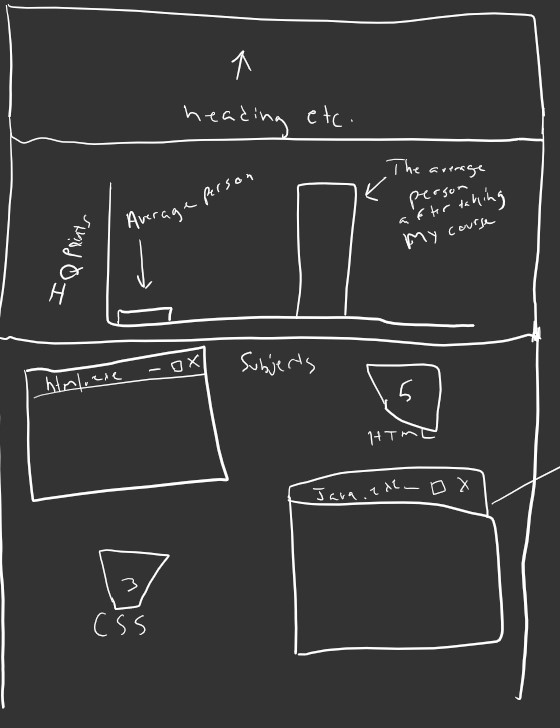 heading etc.
IQ Points
Average person
The average
person
after taking
my course
Subjects
html.exe - □ X
5
HTML
Java.exe - □ X
3
CSS